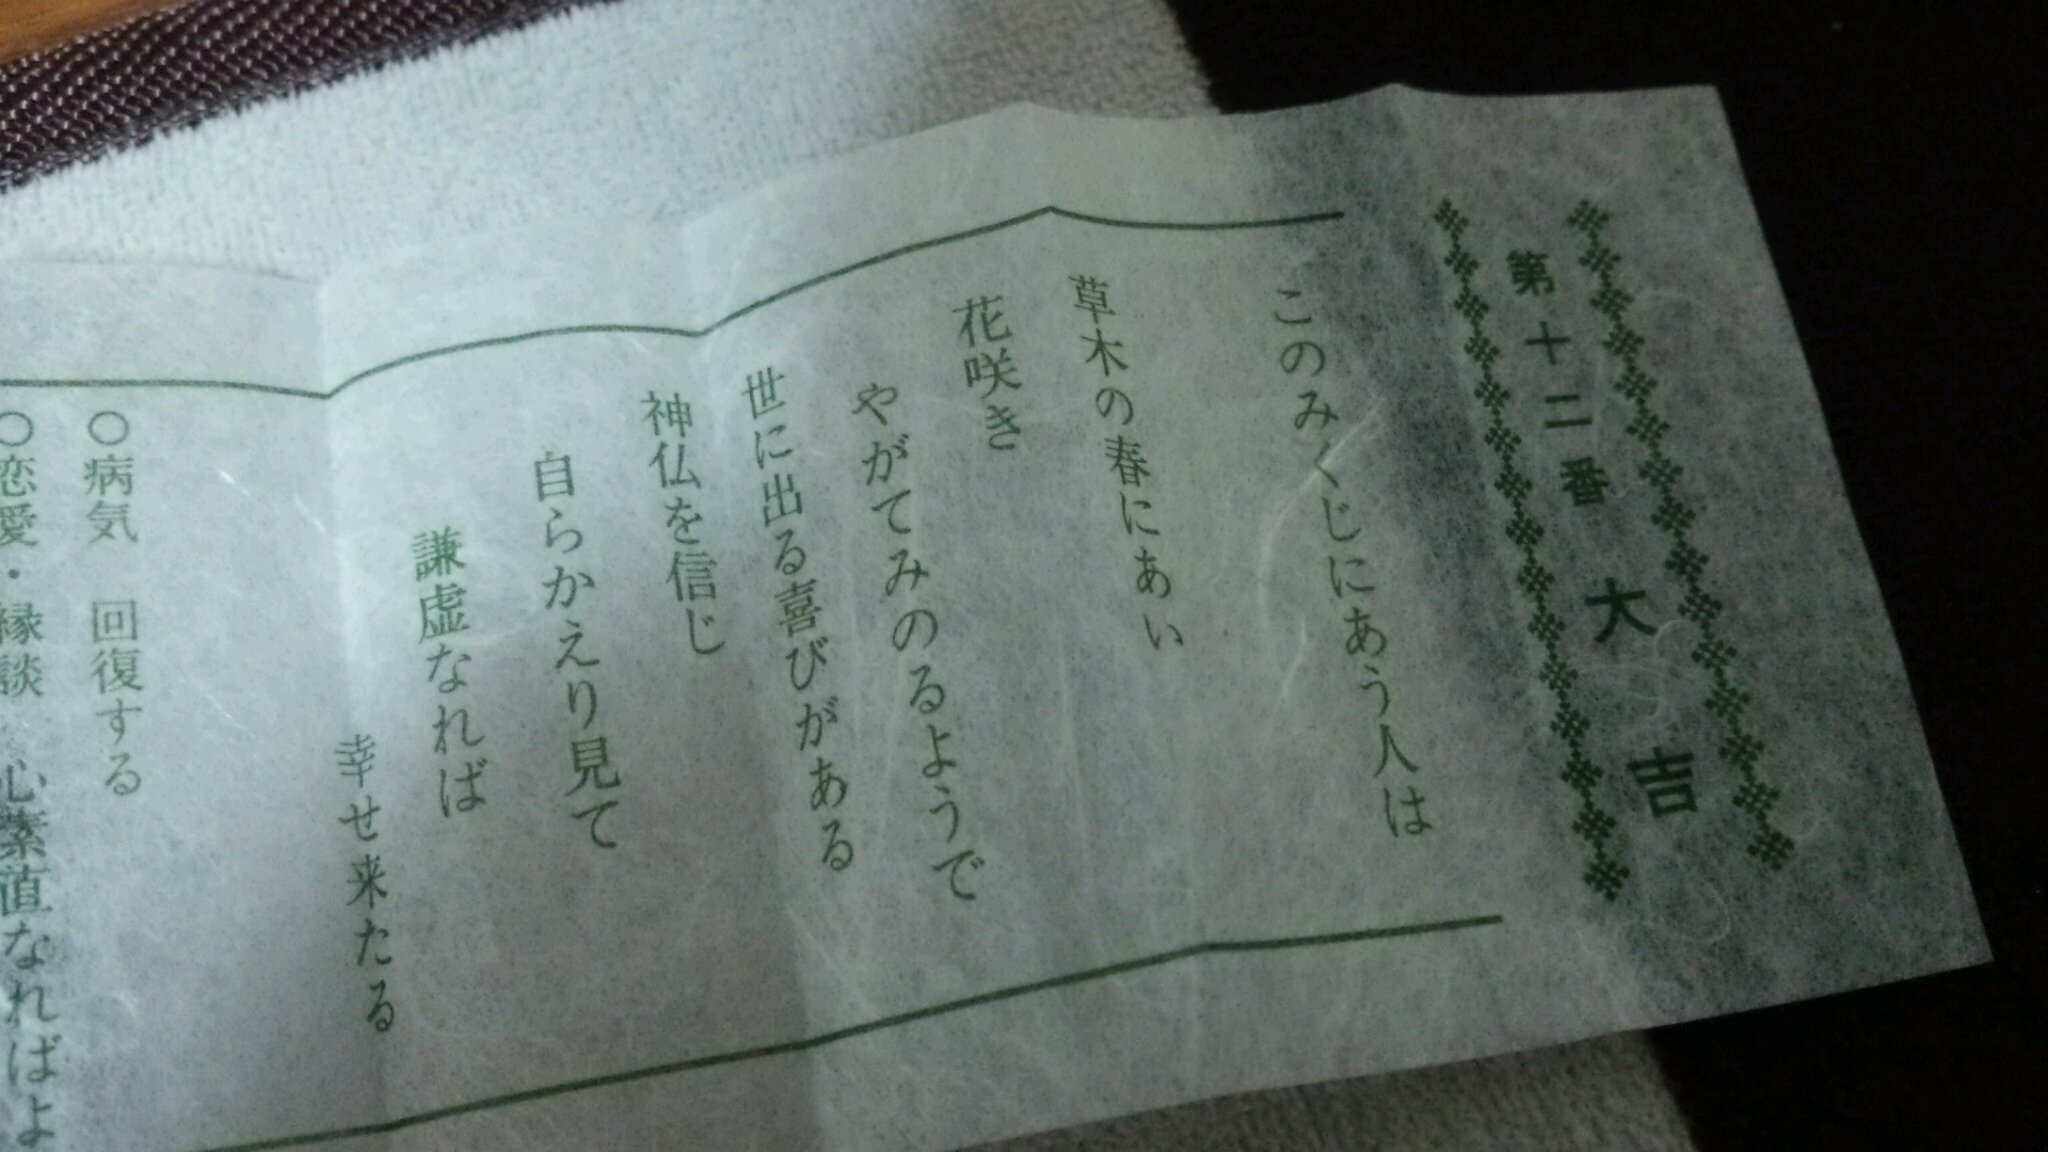 第十二番 大吉
このみくじにあう人は
草木の春にあい
花咲き
やがてみのるようで
世に出る喜びがある
神仏を信じ
自らかえり見て
謙虚なれば
幸せ来たる
○病気 回復する
○恋愛・縁談 心素直なればよ